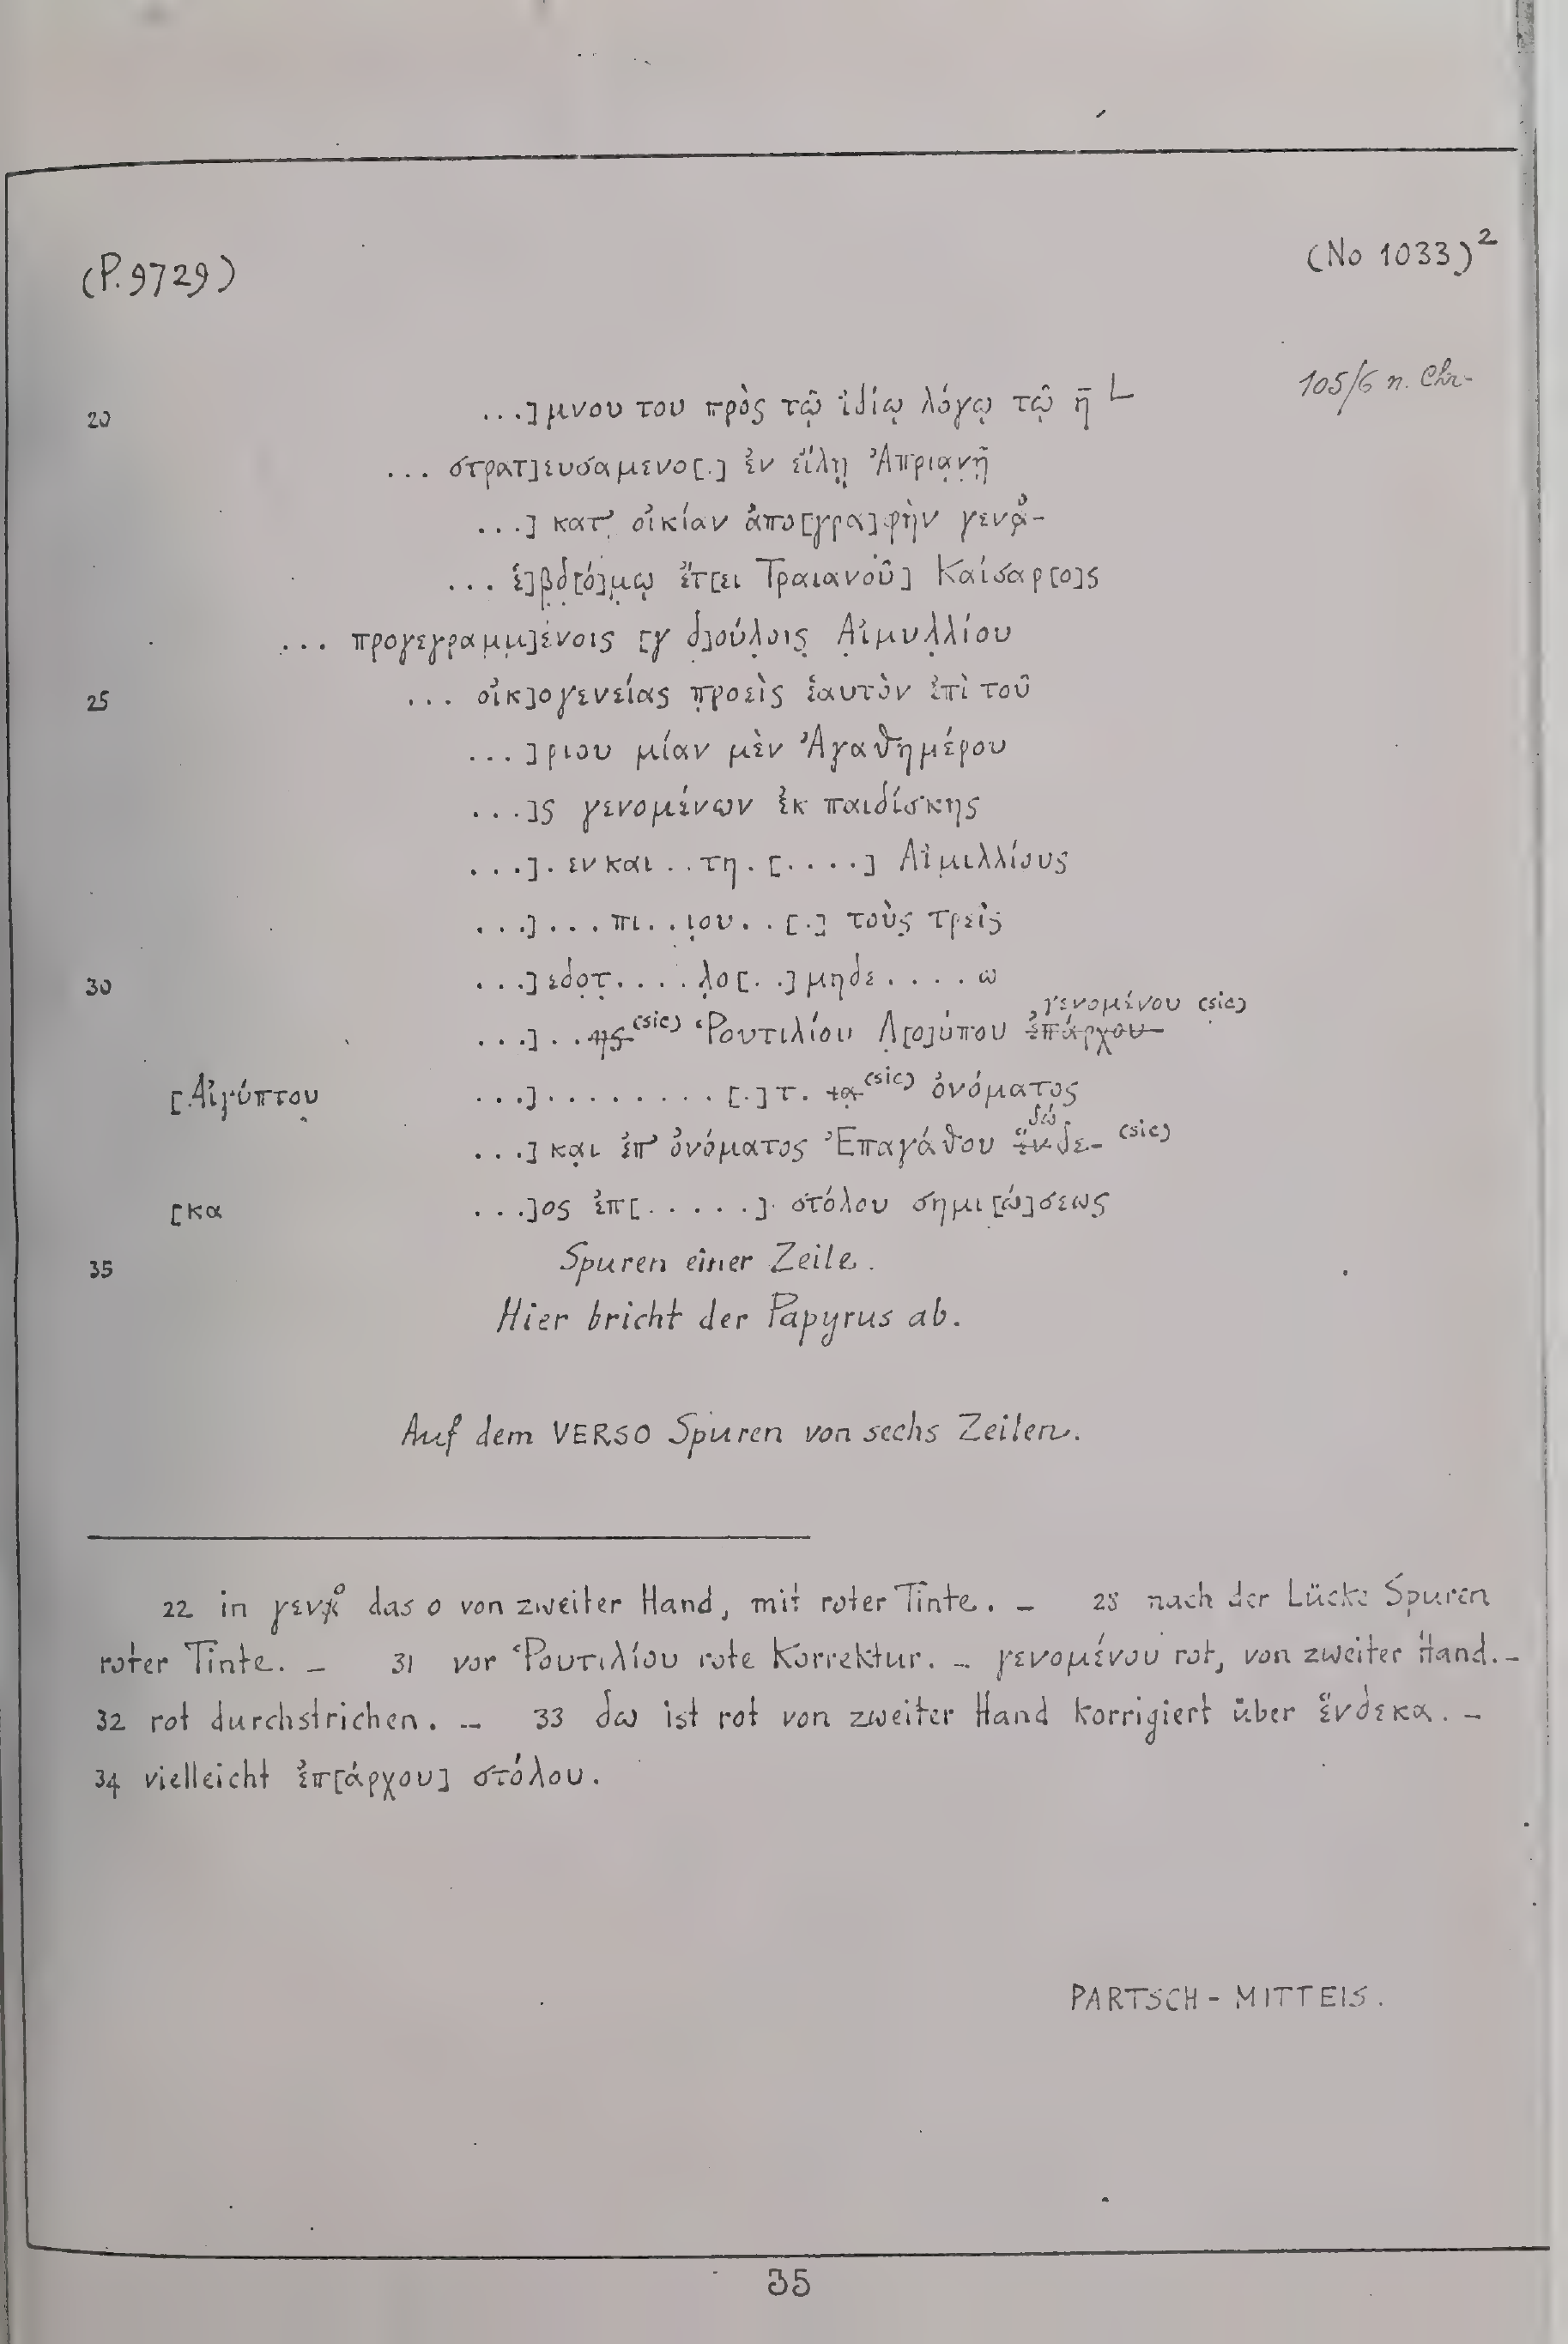 (P.9729)
(No 1033)²
105/6 n. Chr.
20 ...]μνου του πρὸς τῷ ἰδίῳ λόγῳ τῷ η̄ L
... στρατ]ευσαμενο[.] ἐν εἴλῃ Ἀπριανῇ
...] κατ' οἰκίαν ἀπο[γρα]φὴν γενο-
... ἑ]βδ[ό]μῳ ἔτ[ει Τραιανοῦ] Καίσαρ[ο]ς
... προγεγραμμ]ένοις [γ δ]ούλοις Αἰμυλλίου
25 ... οἰκ]ογενείας προεὶς ἑαυτὸν ἐπὶ τοῦ
...]ριου μίαν μὲν Ἀγαθημέρου
...]ς γενομένων ἐκ παιδίσκης
...]. εν και .. τη. [....] Αἰμιλλίους
...]... πι..ιου..[.] τοὺς τρεῖς
30 ...]εδοτ....λο[..]μηδε....ω
γενομένου (sic)
...]..ης (sic) Ῥουτιλίου Λ[ο]ύπου ἐπάρχου
[Αἰγύπτου ...]........[.]τ. τα (sic) ὀνόματος
δώ
...] και ἐπ' ὀνόματος Ἐπαγάθου ἕνδε- (sic)
[κα ...]ος ἐπ[.....]. στόλου σημι[ώ]σεως
35 Spuren einer Zeile.
Hier bricht der Papyrus ab.
Auf dem VERSO Spuren von sechs Zeilen.
22 in γενο das ο von zweiter Hand, mit roter Tinte. – 28 nach der Lücke Spuren
roter Tinte. – 31 vor Ῥουτιλίου rote Korrektur. – γενομένου rot, von zweiter Hand. –
32 rot durchstrichen. – 33 δω ist rot von zweiter Hand korrigiert über ἕνδεκα. –
34 vielleicht ἐπ[άρχου] στόλου.
PARTSCH - MITTEIS.
35